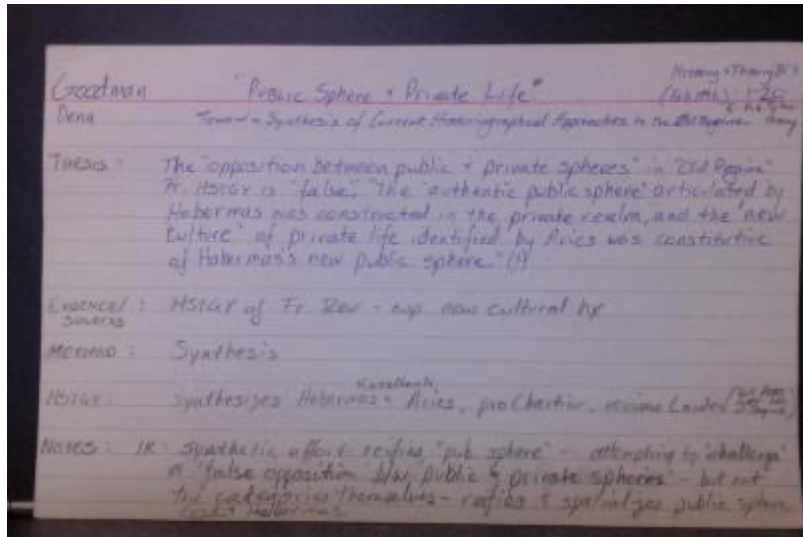 Goodman "Public Sphere + Private Life"
History + Theory 31:1
Dena Toward a Synthesis of Current Historiographical Approaches to the Old Regime
Thesis: The "opposition between public + private spheres" in "Old Regime"
Fr. HSIGY is "false". "The 'authentic public sphere' articulated by
Habermas was constructed in the private realm, and the 'new
culture' of private life identified by Aries was constitutive
of Habermas's new public sphere." (1)
Evidence/ : HSIGY of Fr. Rev - esp. new cultural hx
Sources
Method : Synthesis
Koselleck
HSIGY: synthesizes Habermas + Aries, pro Chartier, revises Landes
Notes: IR: synthetic effort reifies "pub. sphere" - attempting to "challenge"
a "false opposition b/w public & private spheres" - but not
the categories themselves - reifies & spatializes public sphere